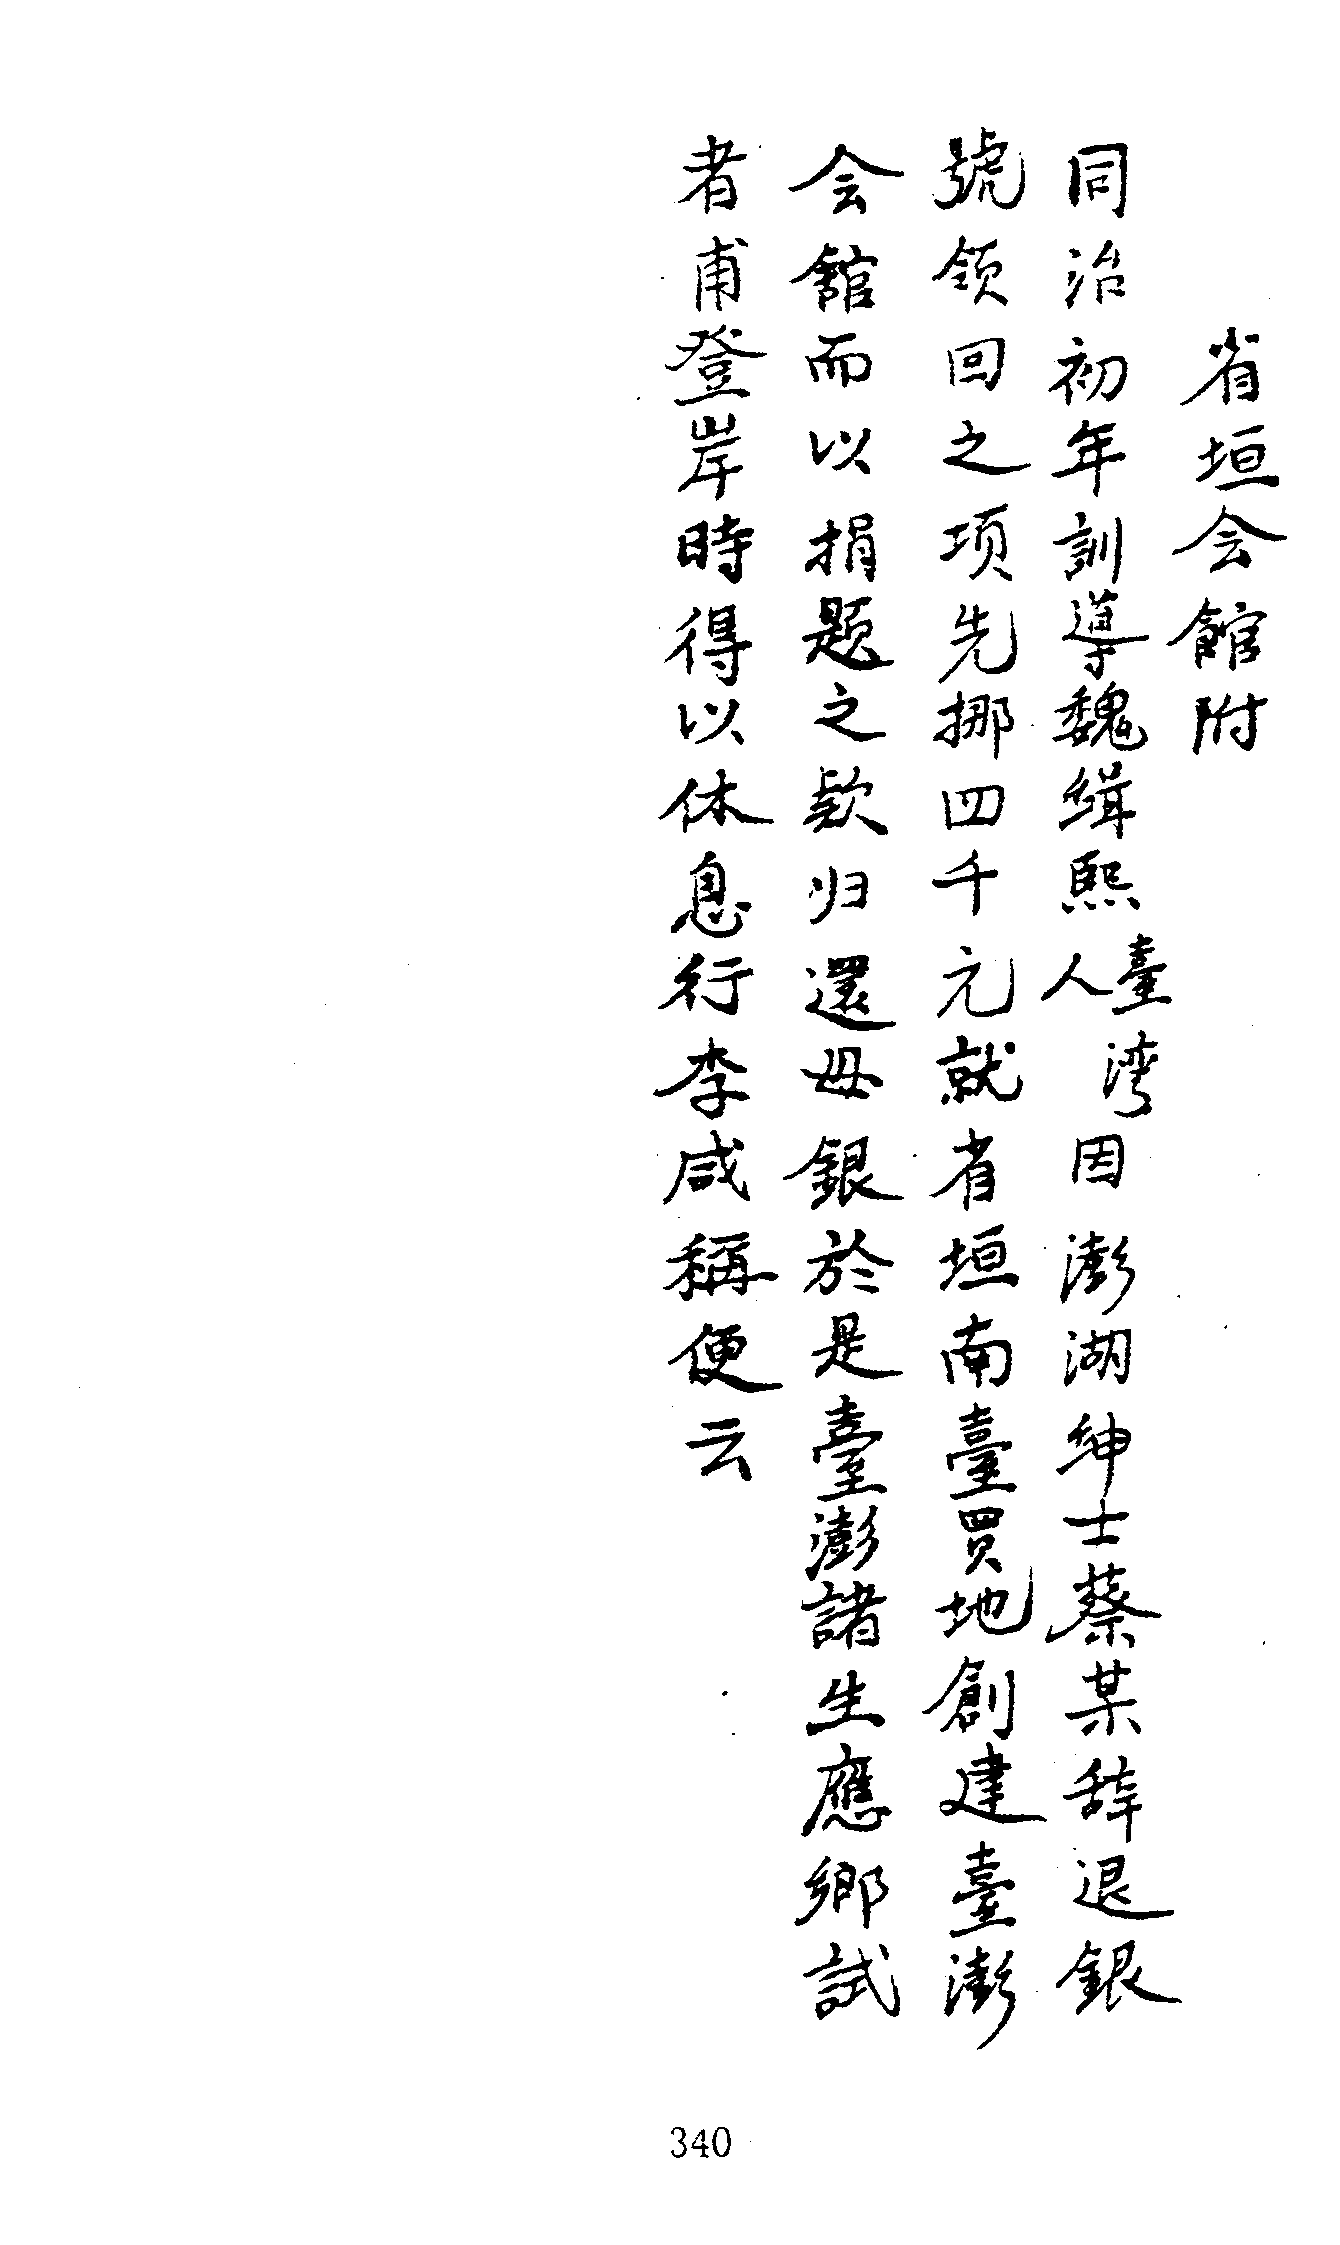 省垣会館附
同治初年訓導魏缉熙臺湾人因澎湖绅士蔡某辞退銀
號领回之项先挪四千元就省垣南臺買地創建臺澎
会舘而以捐题之欵归還母銀於是臺澎諸生應鄉試
者甫登岸時得以休息行李咸稱便云
340